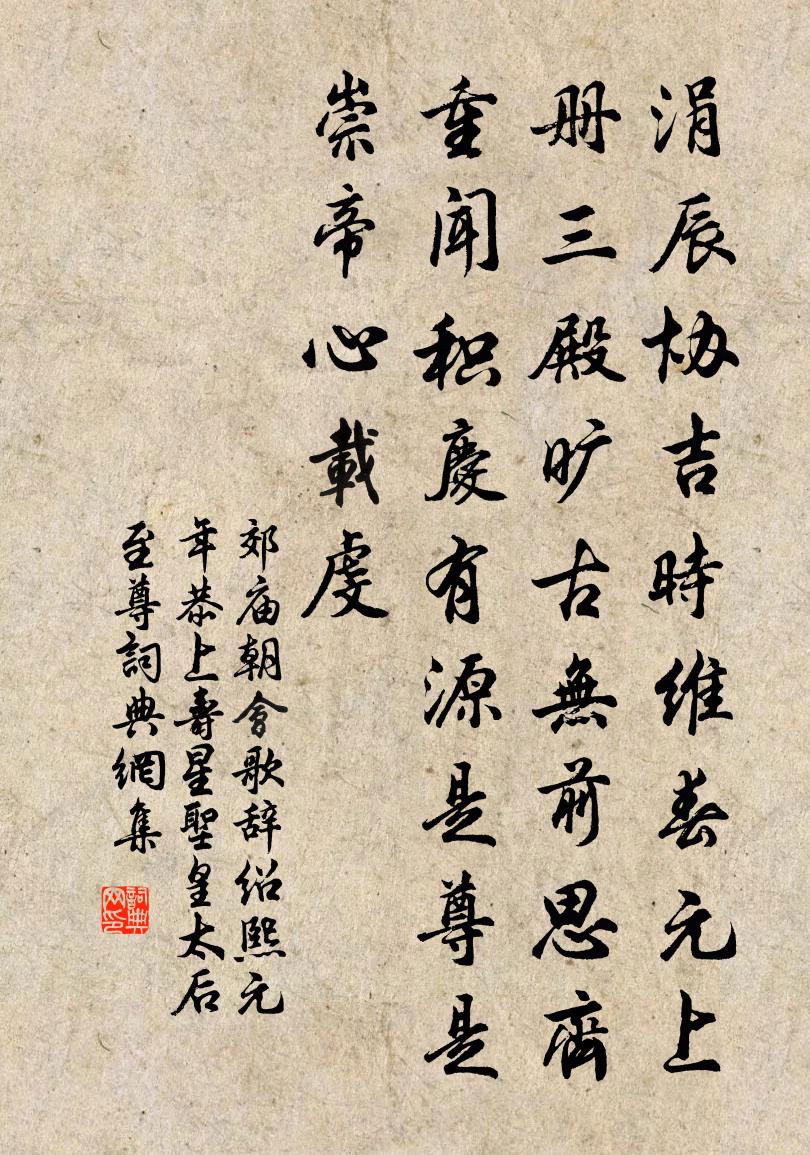 涓辰协吉時維春元上
册三殿旷古無前思齊
重闻积慶有源是尊是
崇帝心載虔
郊庙朝會歌辞绍熙元
年恭上壽星聖皇太后
至尊詞典網集
詞典网印